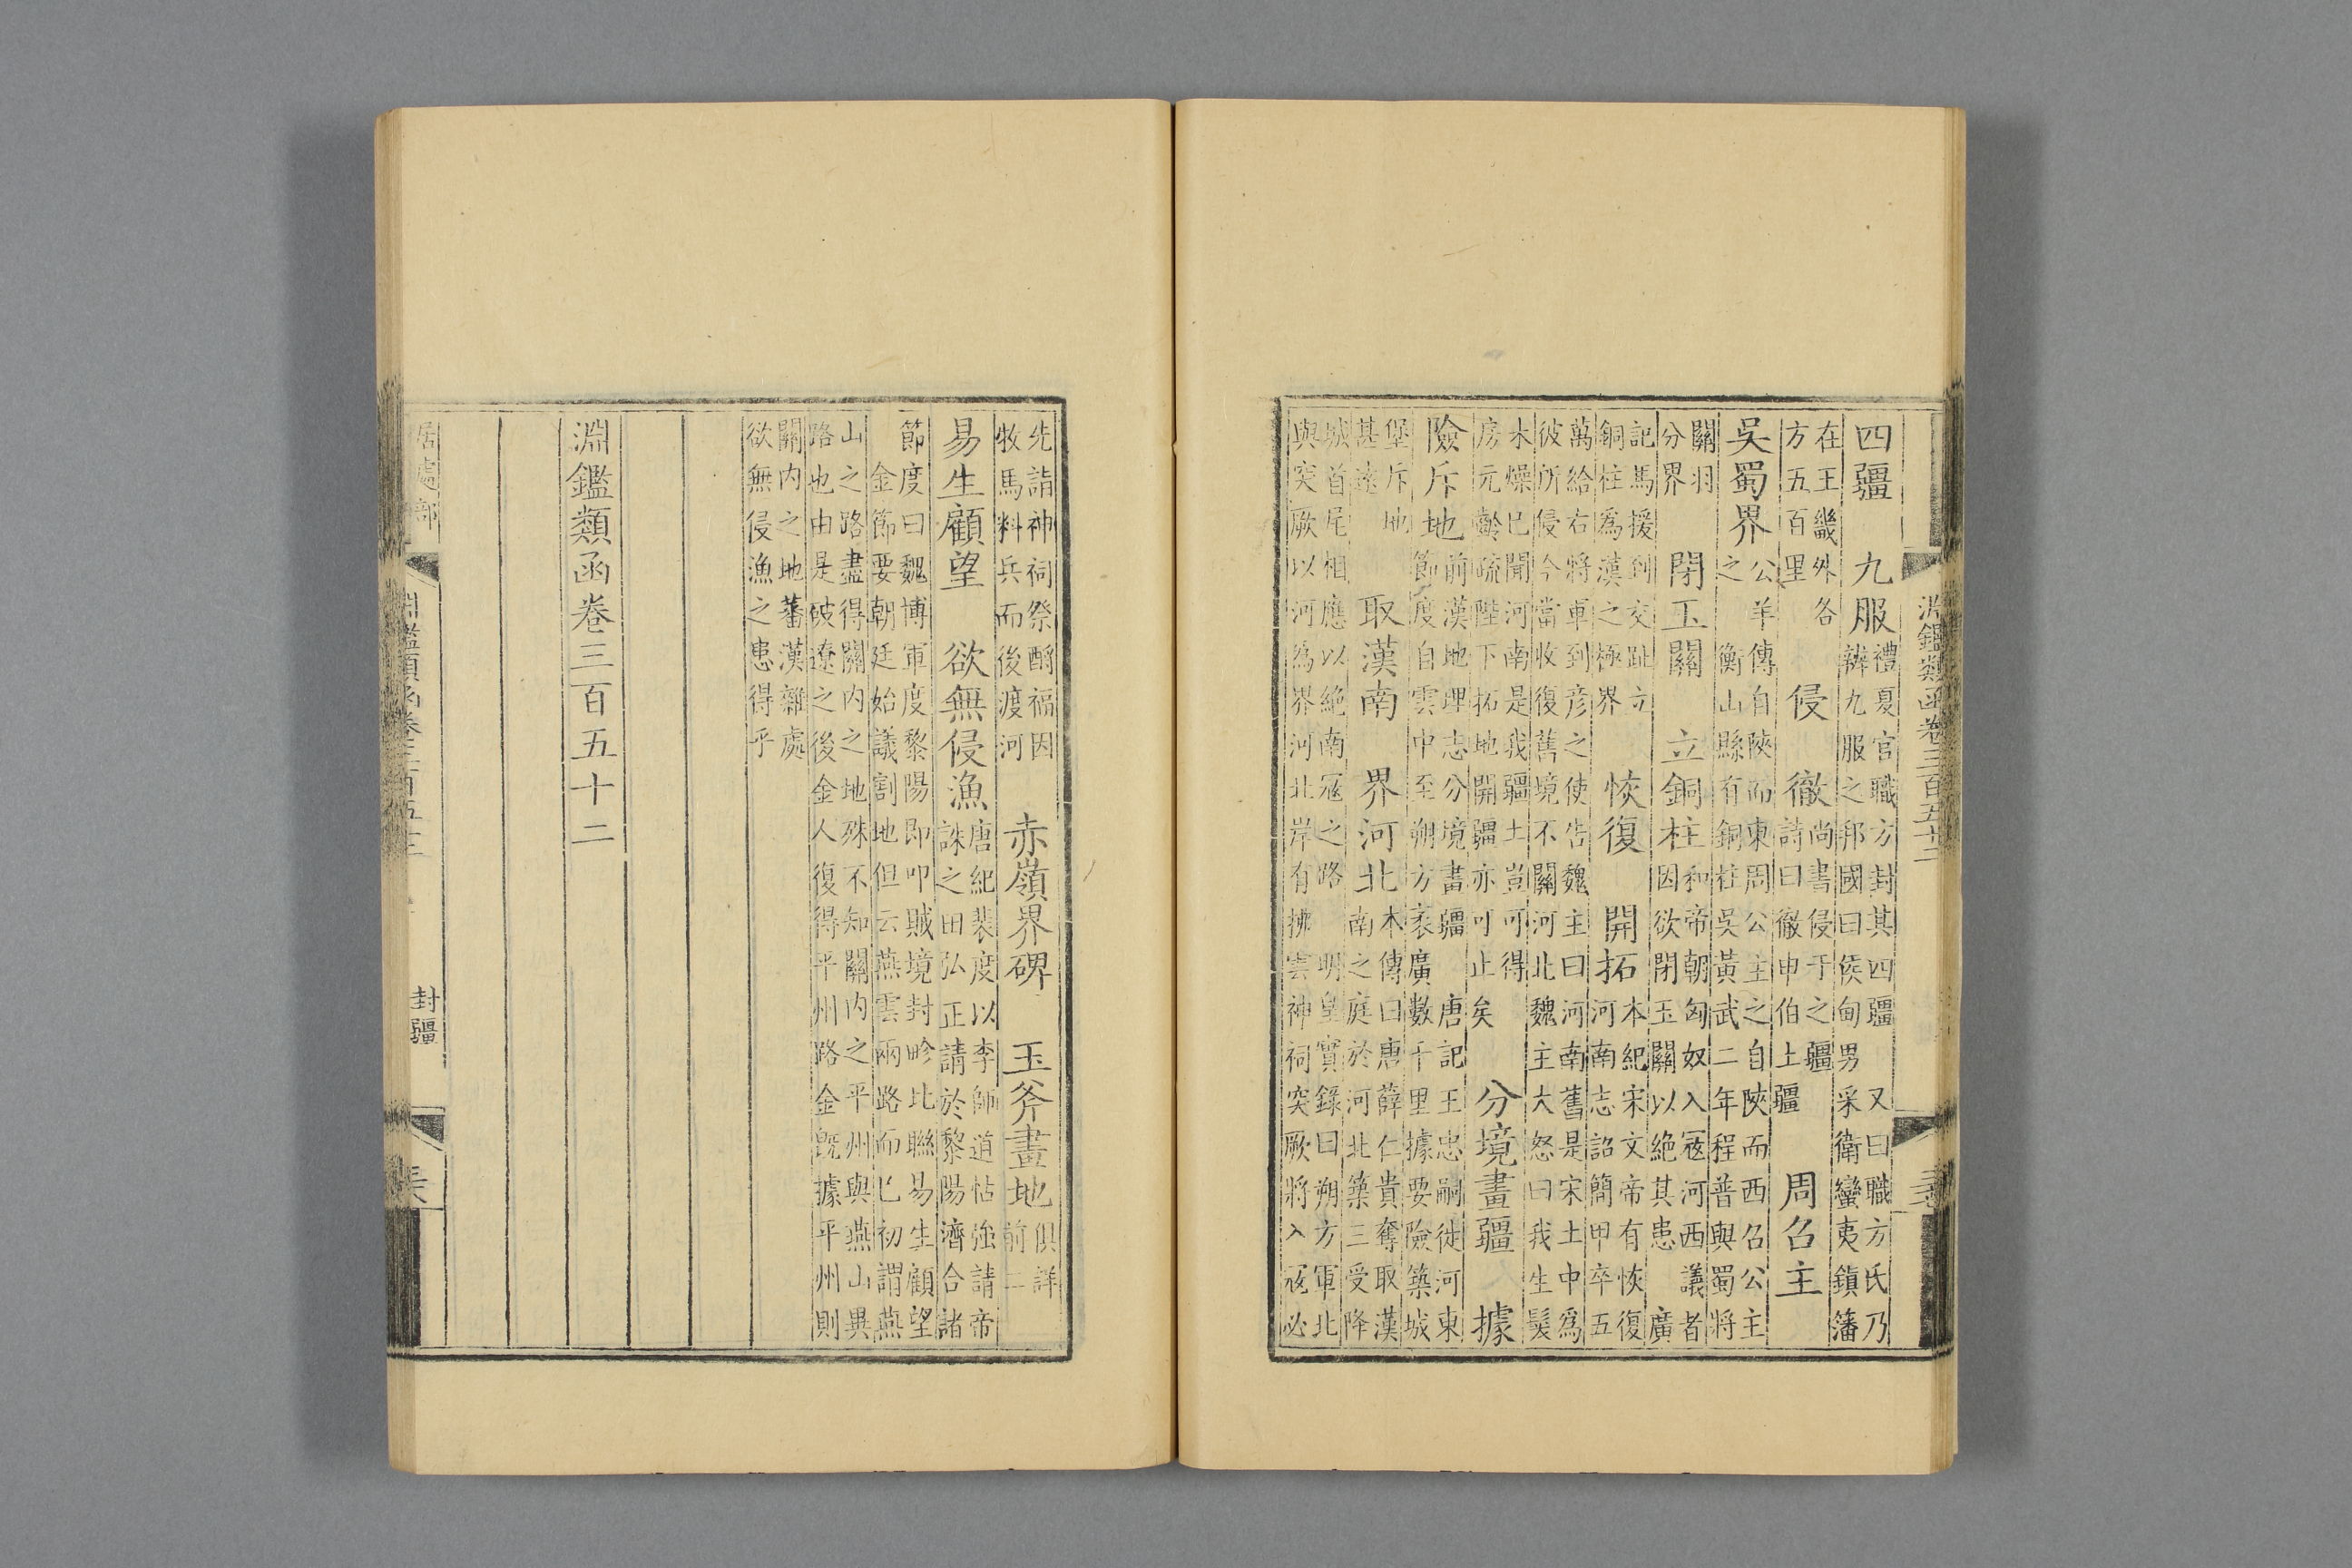 淵鑑類函卷三百五十二
四疆　九服
禮夏官職方封其四疆　又曰職方氏乃
辨九服之邦國曰侯甸男采衛蠻夷鎮籓
在王畿外各
方五百里
侵　徹
尚書侵于之疆
詩曰徹申伯土疆
周召主
吳蜀界
公羊傳自陝而東周公主之自陝而西召公主
之　衡山縣有銅柱吳黃武二年程普與蜀將
關羽
分界
閉玉關　立銅柱
和帝朝匈奴入寇河西議者
因欲閉玉關以絕其患　廣
記馬援到交趾立
銅柱為漢之極界
恢復　開拓
本紀宋文帝有恢復
河南志詔簡甲卒五
萬給右將軍到彦之使告魏主曰河南舊是宋土中為
彼所侵今當收復舊境不關河北魏主大怒曰我生髮
未燥已聞河南是我疆土豈可得
房元齡疏陛下拓地開疆亦可止矣
分境畫疆　據
險斥地
前漢地理志分境畫疆　唐記王忠嗣徙河東
節度自雲中至朔方袤廣數千里據要險築城
堡斥地
甚遠
取漢南　界河北
本傳曰唐薛仁貴奪取漢
南之庭於河北築三受降
城首尾相應以絕南寇之路　明皇實錄曰朔方軍北
與突厥以河為界河北岸有拂雲神祠突厥將入寇必
先詣神祠祭酹福因
牧馬料兵而後渡河
赤嶺界碑　玉斧畫地
俱詳
前二
易生顧望　欲無侵漁
唐紀裴度以李師道怙強請帝
誅之田弘正請於黎陽濟合諸
節度曰魏博軍度黎陽即叩賊境封畛比聯易生顧望
金節要朝廷始議割地但云燕雲兩路而已初謂燕
山之路盡得關內之地殊不知關內之平州與燕山異
路也由是破遼之後金人復得平州路金既據平州則
關內之地蕃漢雜處
欲無侵漁之患得乎
淵鑑類函卷三百五十二
居處部
淵鑑類函卷三百五十二
封疆